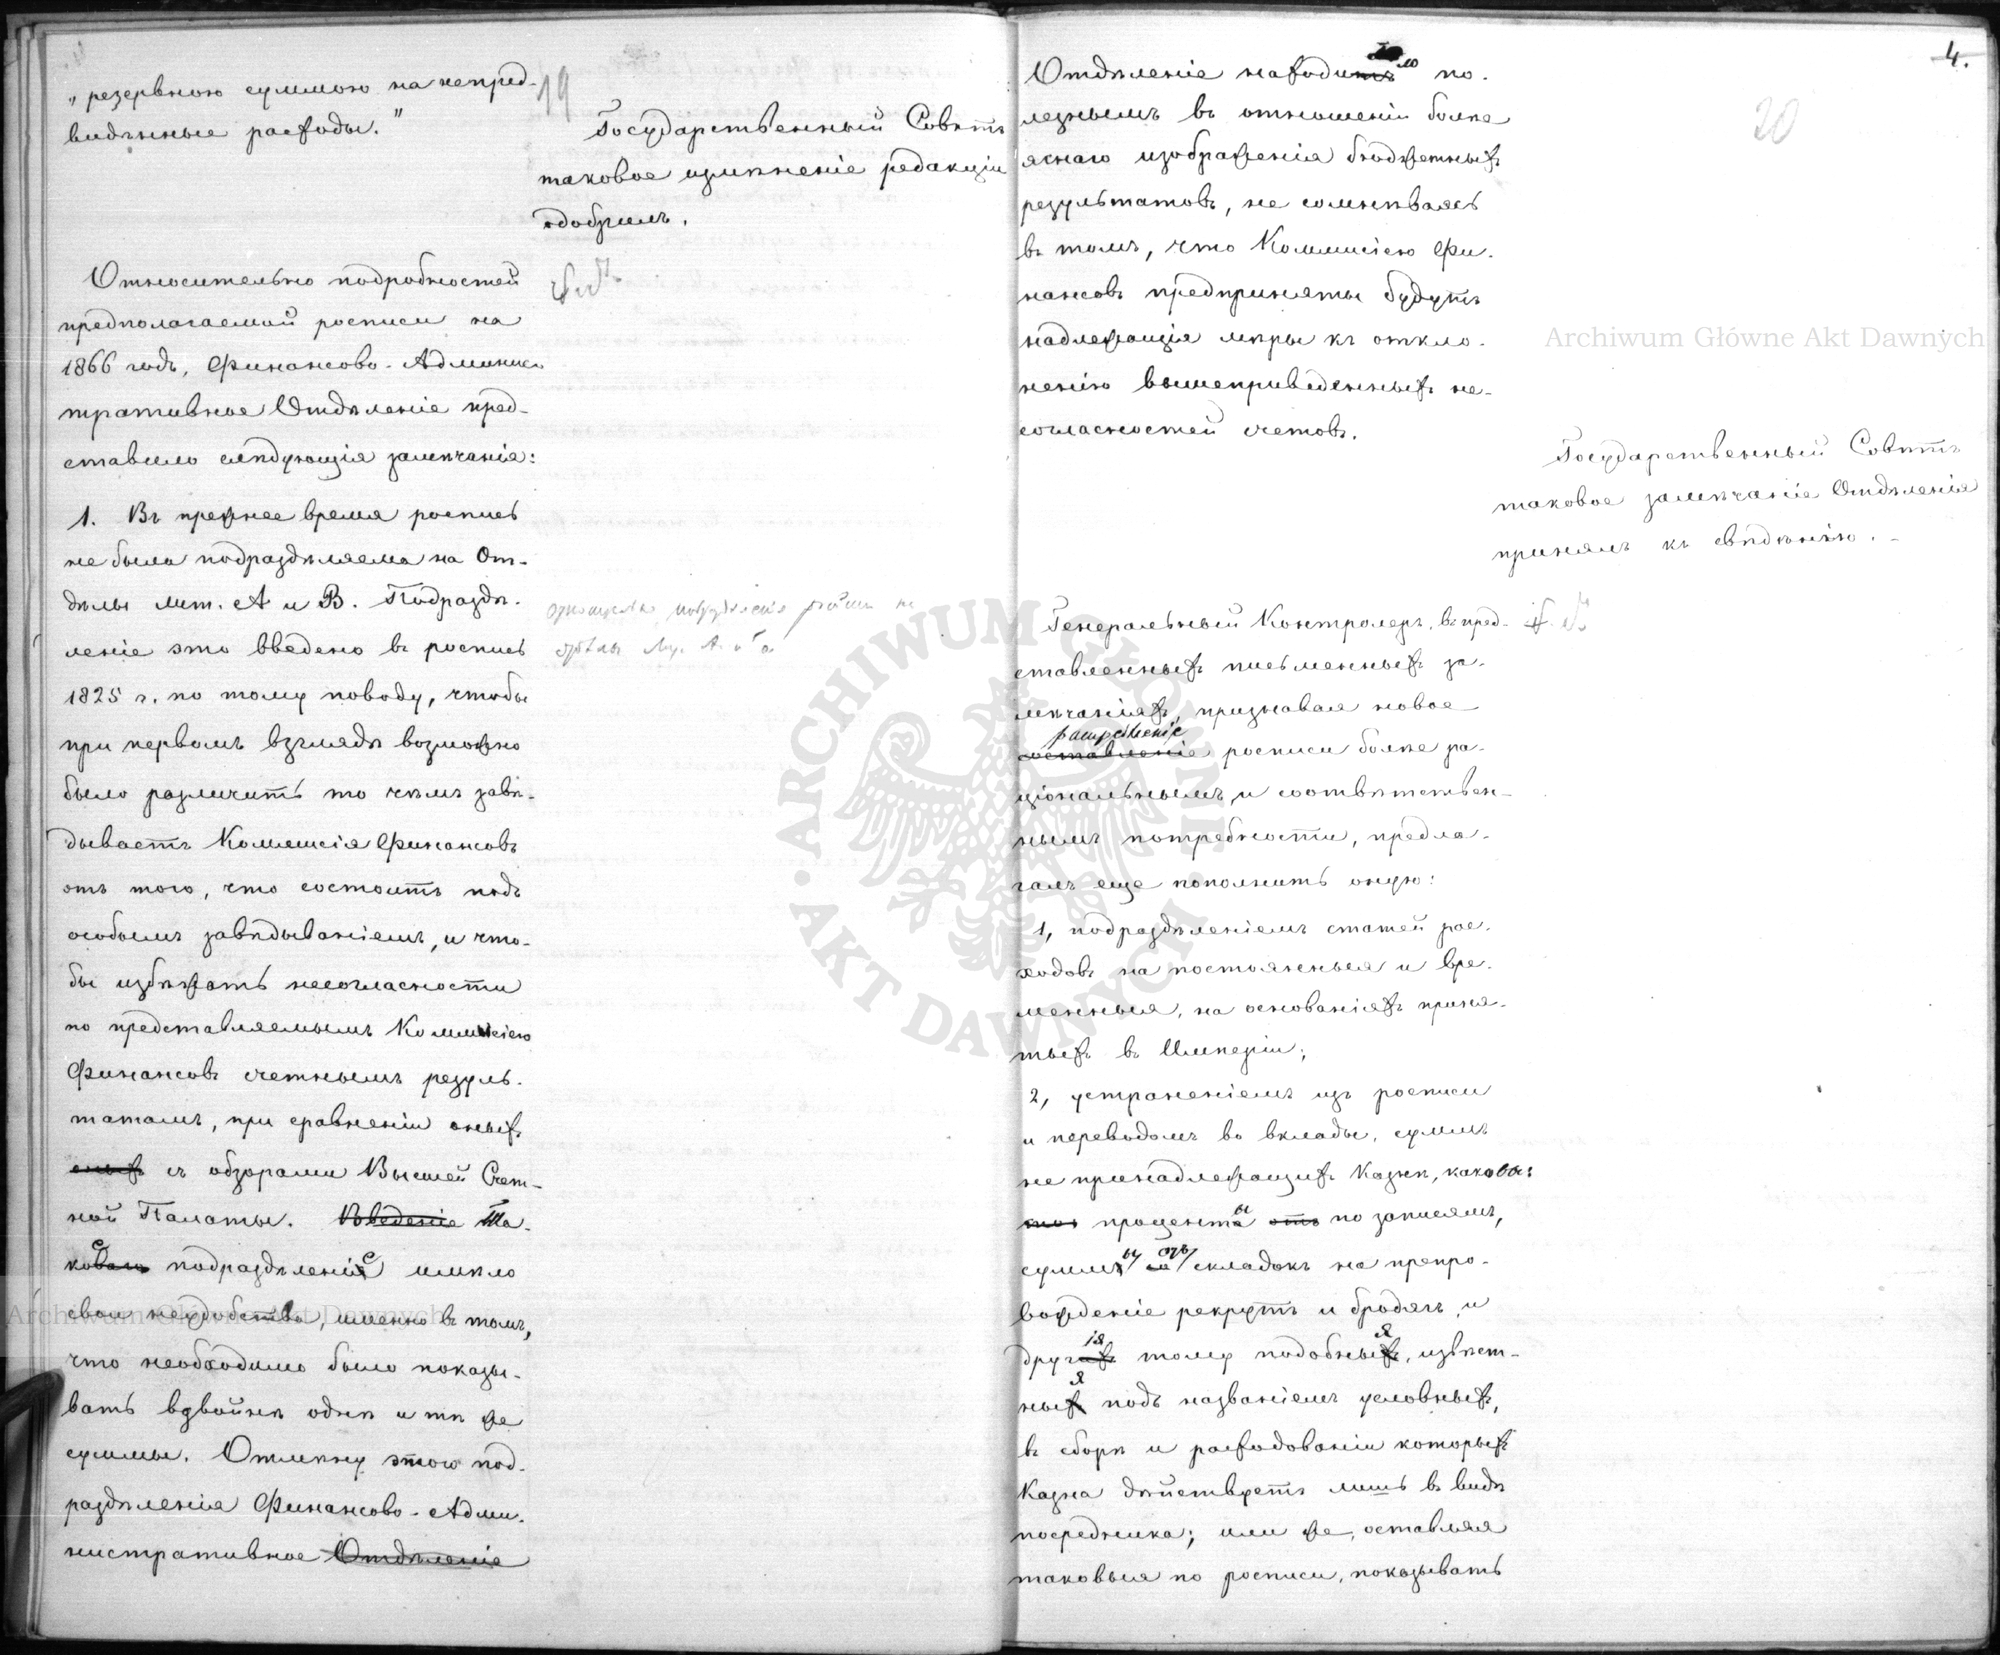 „резервною суммою на непред-
видѣнные расходы."
19
Государственный Совѣтъ
таковое измѣненіе редакціи
одобрилъ.
Относительно подробностей
предполагаемой росписи на
1866 годъ, Финансово-Админис-
тративное Отдѣленіе пред-
ставило слѣдующія замѣчанія:
1. Въ прежнее время роспись
не была подраздѣляема на От-
дѣлы лит. А и В. Подраздѣ-
леніе это введено въ роспись
1825 г. по тому поводу, чтобы
при первомъ взглядѣ возможно
было различить то чѣмъ завѣ-
дываетъ Коммисія Финансовъ
отъ того, что состоитъ подъ
особымъ завѣдываніемъ, и что-
бы избѣжать несогласности
по представляемымъ Коммисіею
Финансовъ счетнымъ резуль-
татамъ, при сравненіи оныхъ
оныхъ съ обзорами Высшей Счет-
ной Палаты. Введеніе Та-
кое подраздѣленіе имѣло
свои неудобства, именно въ томъ,
что необходимо было показы-
вать вдвойнѣ однѣ и тѣ же
суммы. Отмѣну этого под-
раздѣленія Финансово-Адми-
нистративное Отдѣленіе
лит. А и В
4.
20
Отдѣленіе находило по-
лезнымъ въ отношеніи болѣе
яснаго изображенія бюджетныхъ
результатовъ, не сомнѣваясь
въ томъ, что Коммисіею Фи-
нансовъ предприняты будутъ
надлежащія мѣры къ откло-
ненію вышеприведенныхъ не-
согласностей счетовъ.
Государственный Совѣтъ
таковое замѣчаніе Отдѣленія
принялъ къ свѣдѣнію.
Генеральный Контролеръ, въ пред-
ставленныхъ письменныхъ за-
мѣчаніяхъ, признавая новое
составленіе росписи болѣе ра-
ціональнымъ, и соотвѣтствен-
нымъ потребности, предла-
галъ еще пополнить оную:
1, подраздѣленіемъ статей рас-
ходовъ на постоянныя и вре-
менныя, на основаніяхъ приня-
тыхъ въ Имперіи;
2, устраненіемъ изъ росписи
и переводомъ во вклады, суммъ
не принадлежащихъ Казнѣ, каковы:
проценты отъ по записямъ,
суммы отъ складокъ на препро-
вожденіе рекрутъ и бродягъ, и
другія тому подобныя, извѣст-
ныя подъ названіемъ условныхъ,
въ сборѣ и расходованіи которыхъ
Казна дѣйствуетъ лишь въ видѣ
посредника; или же, оставляя
таковыя по росписи, показывать
Archiwum Główne Akt Dawnych
Archiwum Główne Akt Dawnych
ARCHIWUM GŁÓWNE AKT DAWNYCH